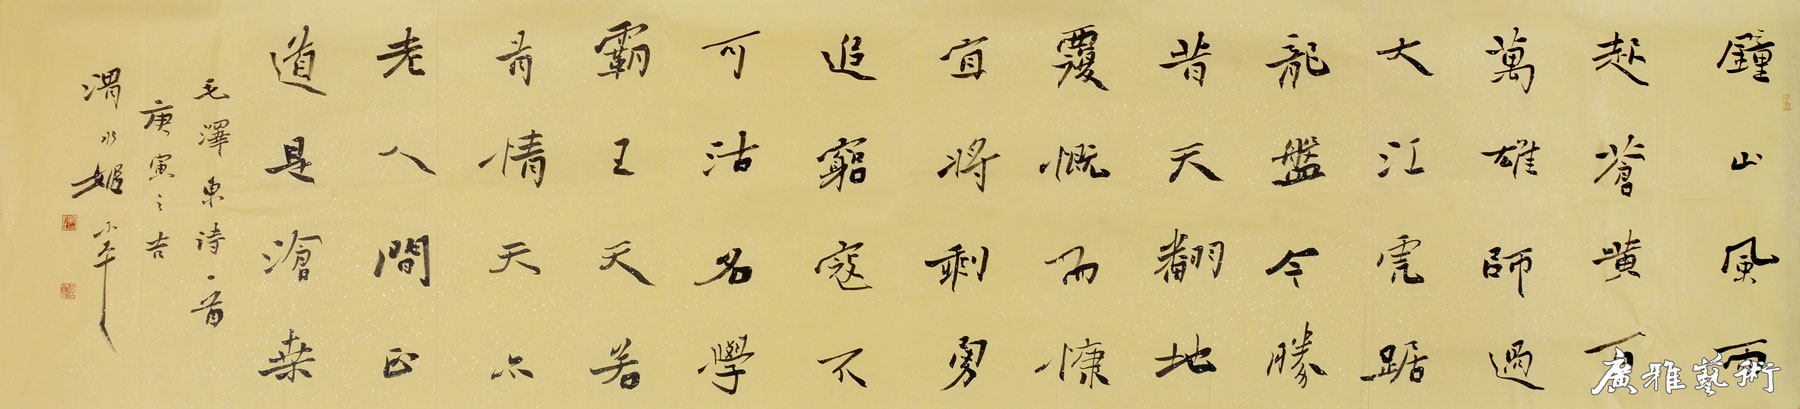 鐘山風雨
起蒼黃百
萬雄師過
大江虎踞
龍盤今勝
昔天翻地
覆慨而慷
宜將剩勇
追窮寇不
可沽名學
霸王天若
有情天亦
老人間正
道是滄桑
毛澤東詩一首
庚寅之吉
渭水姬
廣雅藝術